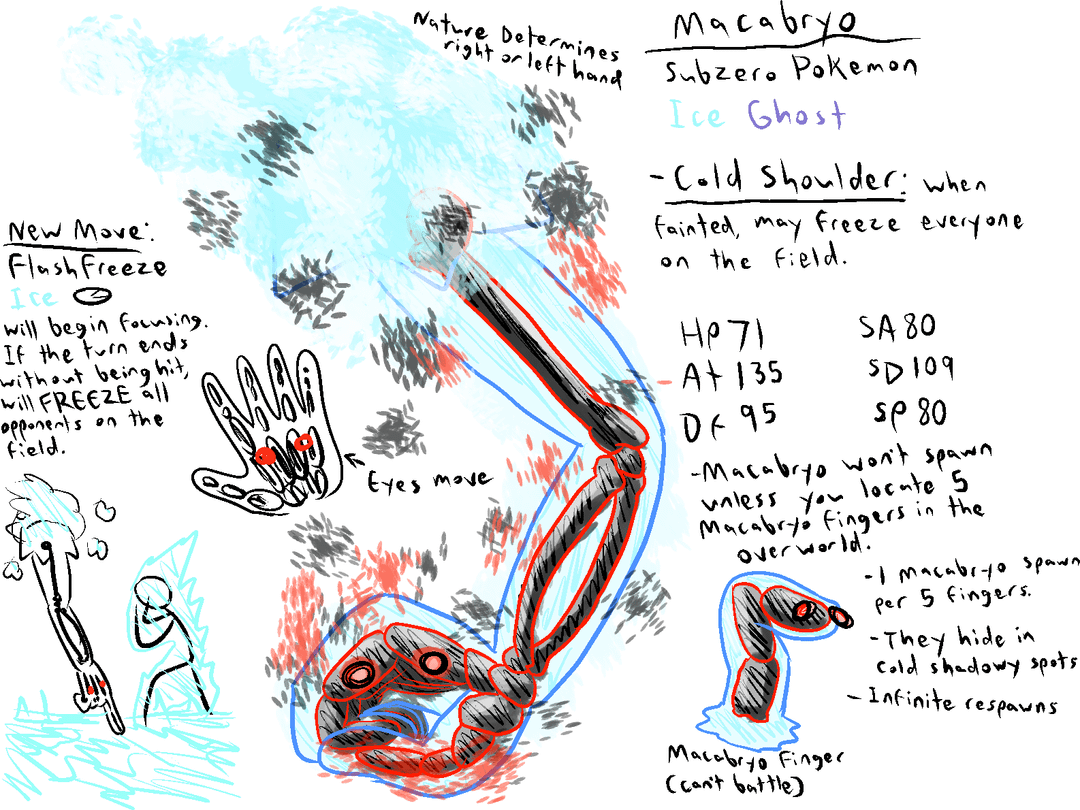 Nature Determines
right or left hand
Macabryo
Subzero Pokemon
Ice Ghost
- Cold Shoulder: when
fainted, may freeze everyone
on the field.
New Move:
Flash Freeze
Ice
will begin focusing.
If the turn ends
without being hit,
will FREEZE all
opponents on the
field.
Eyes move
HP 71 SA 80
At 135 SD 109
Df 95 SP 80
-Macabryo won't spawn
unless you locate 5
Macabryo fingers in the
overworld.
-1 Macabryo spawn
per 5 fingers.
-They hide in
cold shadowy spots
-Infinite respawns
Macabryo Finger
(can't battle)